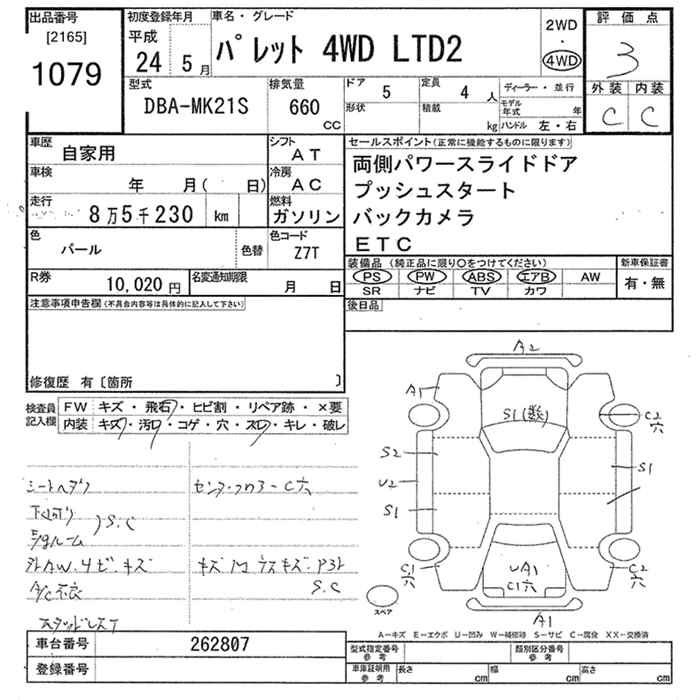 出品番号 初度登録年月 車名・グレード 2WD 評価点
[2165] 平成 パレット 4WD LTD2 ・ 3
1079 24年 5月 4WD 外装 内装
型式 排気量 ドア 5 定員 4 人 ディーラー・並行 C C
DBA-MK21S 660 cc 形状 積載 kg モデル年式 年
ハンドル 左・右
車歴 自家用 シフト AT セールスポイント(正常に機能するものに限ります)
車検 年 月( 日) 冷房 AC 両側パワースライドドア
走行 8万5千230 km 燃料 ガソリン プッシュスタート
バックカメラ
色 パール 色替 色コード Z7T ETC
R券 10,020円 名変通知期限 月 日 装備品(純正品に限り○をつけてください) 新車保証書
PS PW ABS エアB AW 有・無
SR ナビ TV カワ
注意事項申告欄(不具合内容等は具体的に記入して下さい) 後日品
修復歴 有〔箇所 〕
検査員記入欄 FW キズ・飛石・ヒビ割・リペア跡・×要
内装 キズ・汚・コゲ・穴・スレ・キレ・破レ
シートヘタリ センターフロアーC穴
下回り S.C
外AW.ナビ.キズ
S.C
A2
A1
S1(数)
C2穴
S2
S1
U2
S1
C1穴
C2穴
UA1
C1穴
A1
スペア
A－キズ E－エクボ U－凹み W－補修跡 S－サビ C－腐食 XX－交換済
車台番号 262807 型式指定番号 参考 類別区分番号 参考
登録番号 車庫証明用 参考 長さ cm 幅 cm 高さ cm